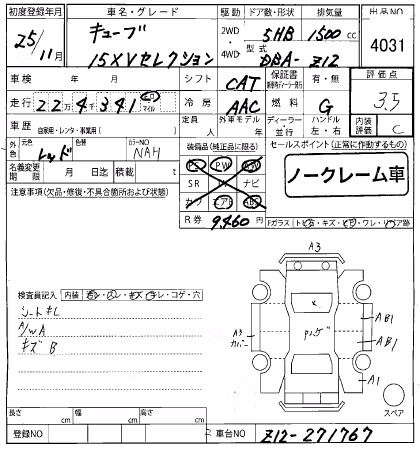 初度登録年月 車名・グレード 駆動 ドア数・形状 排気量 出品NO
25/11月 キューブ 2WD 5HB 1500cc 4031
15XVセレクション 4WD 型式 DBA-Z12
車検 年 月 シフト CAT 保証書 有・無 評価点
走行 2 2万 4千 3 4 1 キロ マイル 冷房 AAC 燃料 G 3.5
車歴 自家用・レンタ・事業用( ) 定員 人 外車モデル 年 ディーラー 並行 ハンドル 左・右 内装評価 C
外色 元色 レッド 色替 カラーNO NAH 装備品(純正品に限る) セールスポイント(正常に作動するもの)
PS PW
名義変更期限 月 日迄 積載 t SR AW ナビ ノークレーム車
注意事項(欠品・修復・不具合箇所および状態) カワ エアB ABS
R券 9460円 Fガラス トビ石・キズ・ヒビ・ワレ・リペア跡
A3
検査員記入 内装 シート キL
A/wA
キズB
X
A3 カバー
AB1
AB1
A1
スペア
長さ cm 幅 cm 高さ cm
登録NO 車台NO Z12-271767